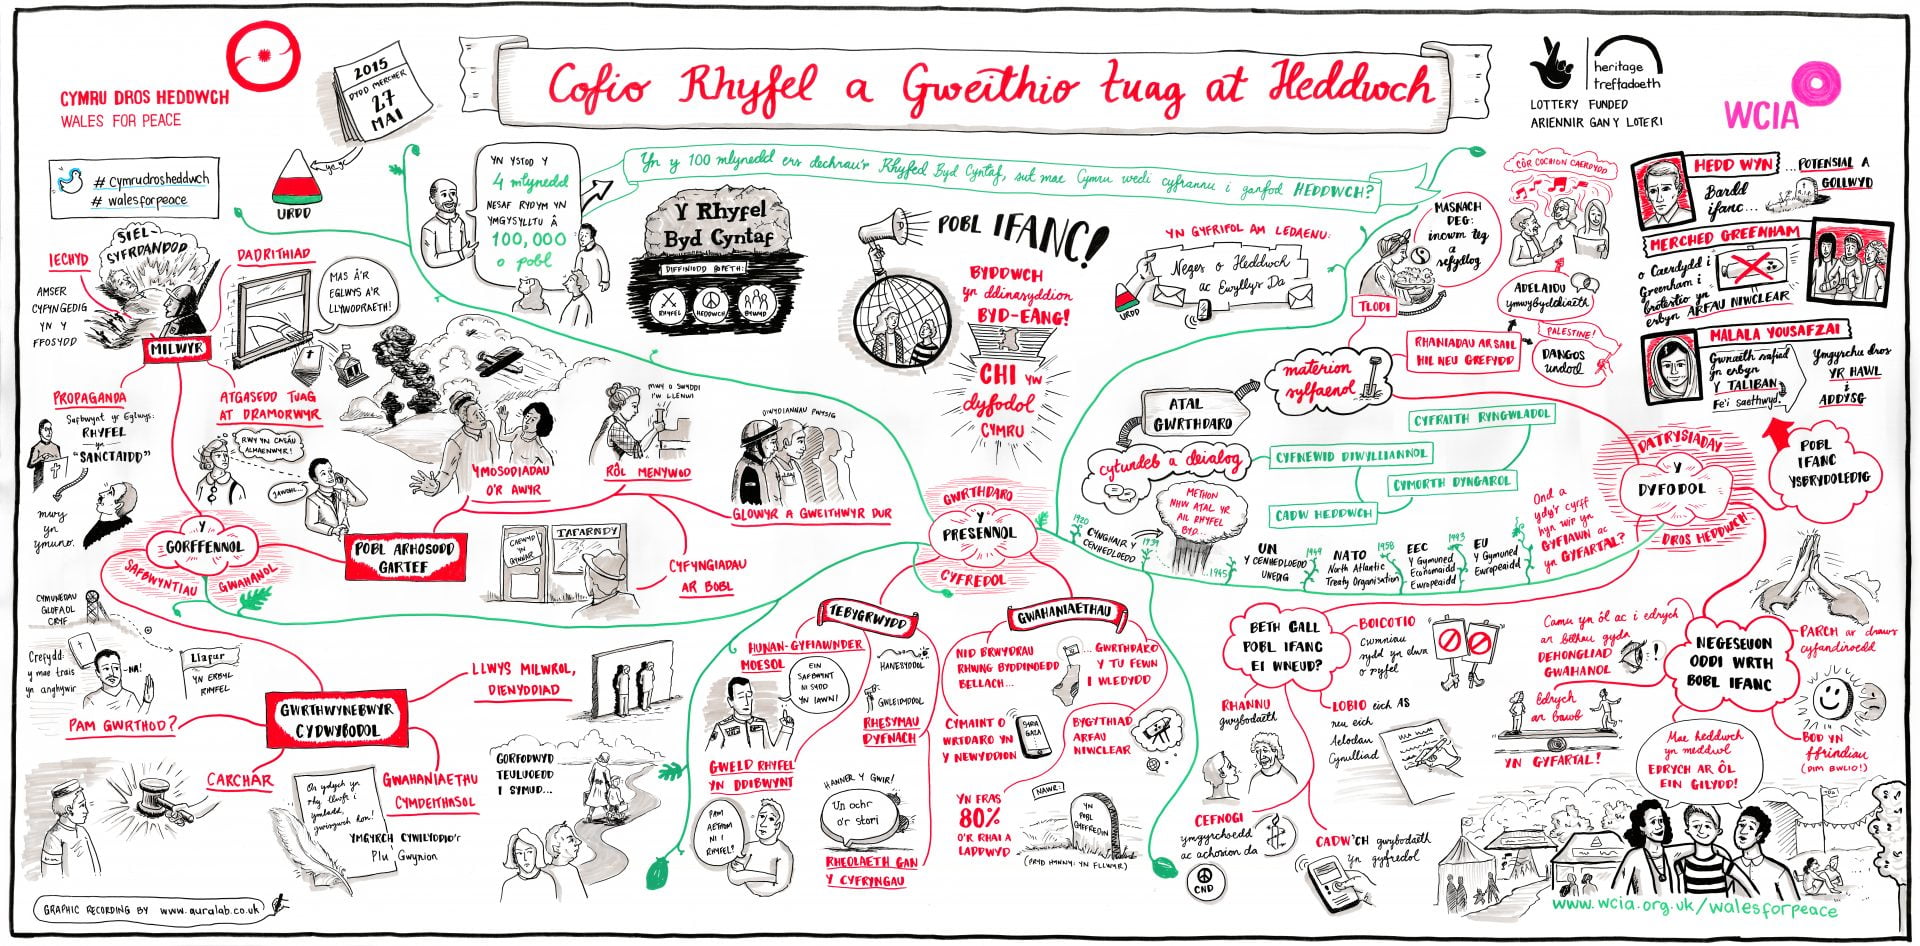 Cofio Rhyfel a Gweithio tuag at Heddwch
CYMRU DROS HEDDWCH
WALES FOR PEACE
2015
DYDD MERCHER
27
MAI
yn yr
URDD
# cymrudrosheddwch
# walesforpeace
heritage
treftadaeth
LOTTERY FUNDED
ARIENNIR GAN Y LOTERI
WCIA
YN YSTOD Y
4 mlynedd
NESAF RYDYM YN
YMGYSYLLTU Â
100,000
o bobl
Yn y 100 mlynedd ers dechrau'r Rhyfed Byd Cyntaf, sut mae Cymru wedi cyfrannu i ganfod HEDDWCH?
Y Rhyfel
Byd Cyntaf
DIFFINIODD POPETH:
RHYFEL
HEDDWCH
BYWYD
POBL IFANC!
BYDDWCH
yn ddinasyddion
BYD-EANG!
CHI YW
dyfodol
CYMRU
YN GYFRIFOL AM LEDAENU:
Neges o Heddwch
ac Ewyllys Da
URDD
MASNACH
DEG:
incwm teg
a
sefydlog
TLODI
CÔR COCHION CAERDYDD
ADEILADU
ymwybyddiaeth
RHANIADAU AR SAIL
HIL NEU GREFYDD
PALESTINE!
DANGOS
undod
materion
sylfaenol
HEDD WYN
Bardd
ifanc...
...POTENSIAL A
GOLLWYD
MERCHED GREENHAM
o Caerdydd i
Greenham i
brotestio yn
erbyn ARFAU NIWCLEAR
MALALA YOUSAFZAI
Gwnaeth safiad
yn erbyn
Y TALIBAN
Fe'i saethwyd.
Ymgyrchu dros
YR HAWL
i
ADDYSG
POBL
IFANC
YSBRYDOLEDIG
SIEL-
SYFRDANDOD
IECHYD
AMSER
CYFYNGEDIG
YN Y
FFOSYDD
DADRITHIAD
MAS Â'R
EGLWYS A'R
LLYWODRAETH!
MILWYR
PROPAGANDA
Safbwynt yr Eglwys:
RHYFEL
yn
"SANCTAIDD"
mwy
yn
ymuno.
ATGASEDD TUAG
AT DRAMORWYR
RWY YN CASÁU
ALMAENWYR!
IAWN...
YMOSODIADAU
O'R AWYR
MWY O SWYDDI
I'W LLENWI
RÔL MENYWOD
DIWYDIANNAU PWYSIG
GLOWYR A GWEITHWYR DUR
Y
GORFFENNOL
SAFBWYNTIAU
GWAHANOL
POBL ARHOSODD
GARTEF
CAEWYD
YN
GYNNAR
TAFARNDY
CYFYNGIADAU
AR BOBL
GWRTHDARO
Y
PRESENNOL
CYFREDOL
ATAL
GWRTHDARO
cytundeb a deialog
CYFRAITH RYNGWLADOL
CYFNEWID DIWYLLIANNOL
CYMORTH DYNGAROL
CADW HEDDWCH
METHON
NHW ATAL YR
AIL RHYFEL
BYD...
1920
CYNGHAIR Y
CENHEDLOEDD
1939
...1945
UN
Y CENHEDLOEDD
UNEDIG
1949
NATO
North Atlantic
Treaty Organisation
1958
EEC
Y Gymuned
Economaidd
Ewropeaidd
1993
EU
Y Gymuned
Ewropeaidd
Ond a
ydy'r cyrff
hyn wir yn
GYFIAWN ac
yn GYFARTAL?
DATRYSIADAU
Y
DYFODOL
DROS HEDDWCH
CYMUNEDAU
GLOFAOL
CRYF
Crefydd:
y mae trais
yn anghywir
-NA!
Llafur
YN ERBYL
RHYFEL
PAM GWRTHOD?
GWRTHWYNEBWYR
CYDWYBODOL
LLWYS MILWROL,
DIENYDDIAD
CARCHAR
GWAHANIAETHU
CYMDEITHASOL
Os ydych yn
rhy llwfr i
ymladd,
gwisgwch hon!
YMGYRCH CYWILYDDIO'R
Plu Gwynion
GORFODWYD
TEULUOEDD
I SYMUD...
TEBYGRWYDD
HUNAN-GYFIAWNDER
MOESOL
EIN
SAFBWYNT
NI SYDD
YN IAWN!
GWELD RHYFEL
YN DDIBWYNT
PAM
AETHOM
NI I
RHYFEL?
HANESYDDOL
GWLEIDYDDOL
RHESYMAU
DYFNACH
HANNER Y GWIR!
Un ochr
o'r stori
RHEOLAETH GAN
Y CYFRYNGAU
GWAHANIAETHAU
NID BRWYDRAU
RHWNG BYDDINOEDD
BELLACH...
...GWRTHDARO
Y TU FEWN
I WLEDYDD
CYMAINT O
WRTDARO YN
Y NEWYDDION
SYRIA
GAZA
BYGYTHIAD
ARFAU
NIWCLEAR
YN FRAS
80%
O'R RHAI A
LADDWYD
NAWR:
YN
BOBL
GYFFREDIN
(PRYD HYNNY: YN FILWYR)
BETH GALL
POBL IFANC
EI WNEUD?
BOICOTIO
Cwmniau
sydd yn elwa
o ryfel
RHANNU
gwybodaeth
LOBIO eich AS
neu eich
Aelodau
Cynulliad
CEFNOGI
ymgyrchoedd
ac achosion da
CND
CADW'CH gwybodaeth
yn gyfredol
Camu yn ôl ac i edrych
ar bethau gyda
DEHONGLIAD
GWAHANOL
!
Edrych
ar bawb
YN GYFARTAL!
NEGESEUON
ODDI WRTH
BOBL IFANC
PARCH ar draws
cyfandiroedd
BOD YN
ffrindiau
(DIM BWLIO!)
Mae heddwch
yn meddwl
EDRYCH AR ÔL
EIN GILYDD!
www.wcia.org.uk/walesforpeace
GRAPHIC RECORDING BY www.auralab.co.uk